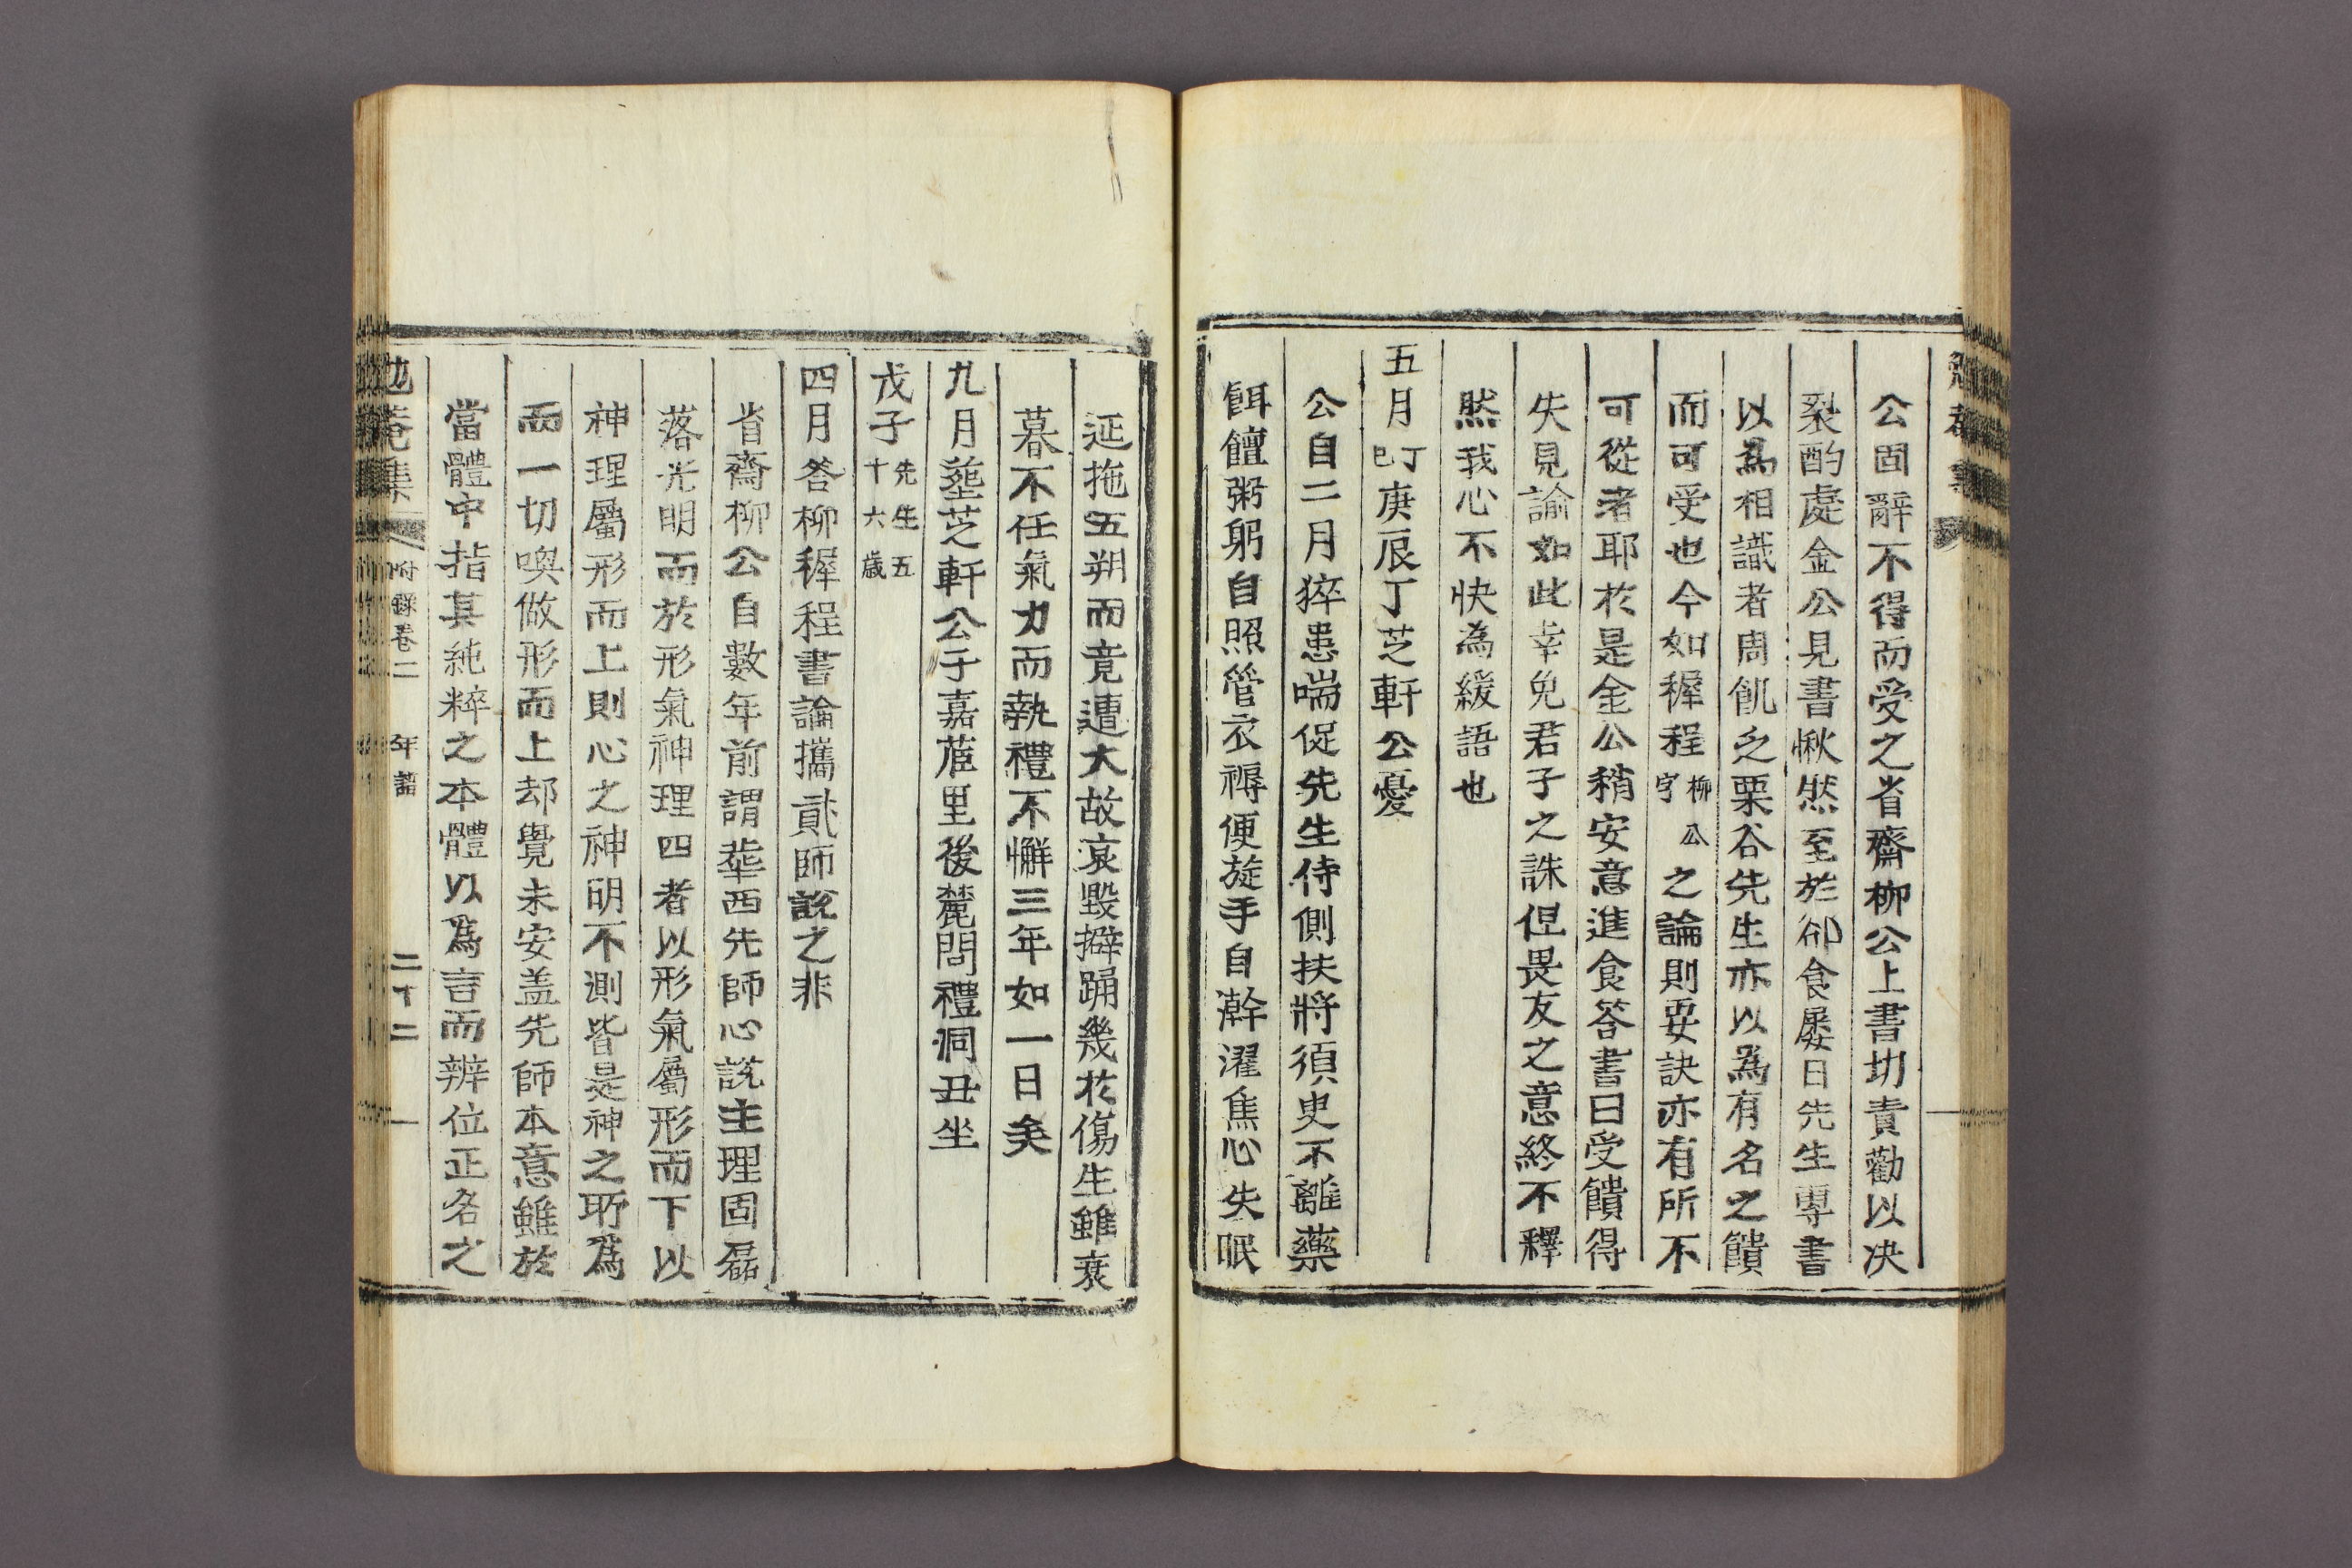 公固辭不得而受之省齋柳公上書切責勸以决
裂酌處金公見書愀然至於郤食屡日先生專書
以爲相識者周飢乏栗谷先生亦以爲有名之饋
而可受也今如穉程柳公字之論則要訣亦有所不
可從者耶於是金公稍安意進食答書曰受饋得
失見諭如此幸免君子之誅但畏友之意終不釋
然我心不快為緩語也
五月丁巳庚辰丁芝軒公憂
公自二月猝患喘促先生侍側扶將須臾不離藥
餌饘粥躬自照管衣褥便旋手自澣濯焦心失眠
延拖五朔而竟遭大故哀毀擗踊幾於傷生雖衰
暮不任氣力而執禮不懈三年如一日矣
九月塟芝軒公于嘉葅里後麓問禮洞丑坐
戊子先生五十六歲
四月答柳穉程書論攜貳師說之非
省齋柳公自數年前謂華西先師心說主理固磊
落光明而於形氣神理四者以形氣屬形而下以
神理屬形而上則心之神明不測皆是神之所爲
而一切喚做形而上却覺未安盖先師本意雖於
當體中指其純粹之本體以爲言而辨位正名之
附錄卷二 年譜 二十二